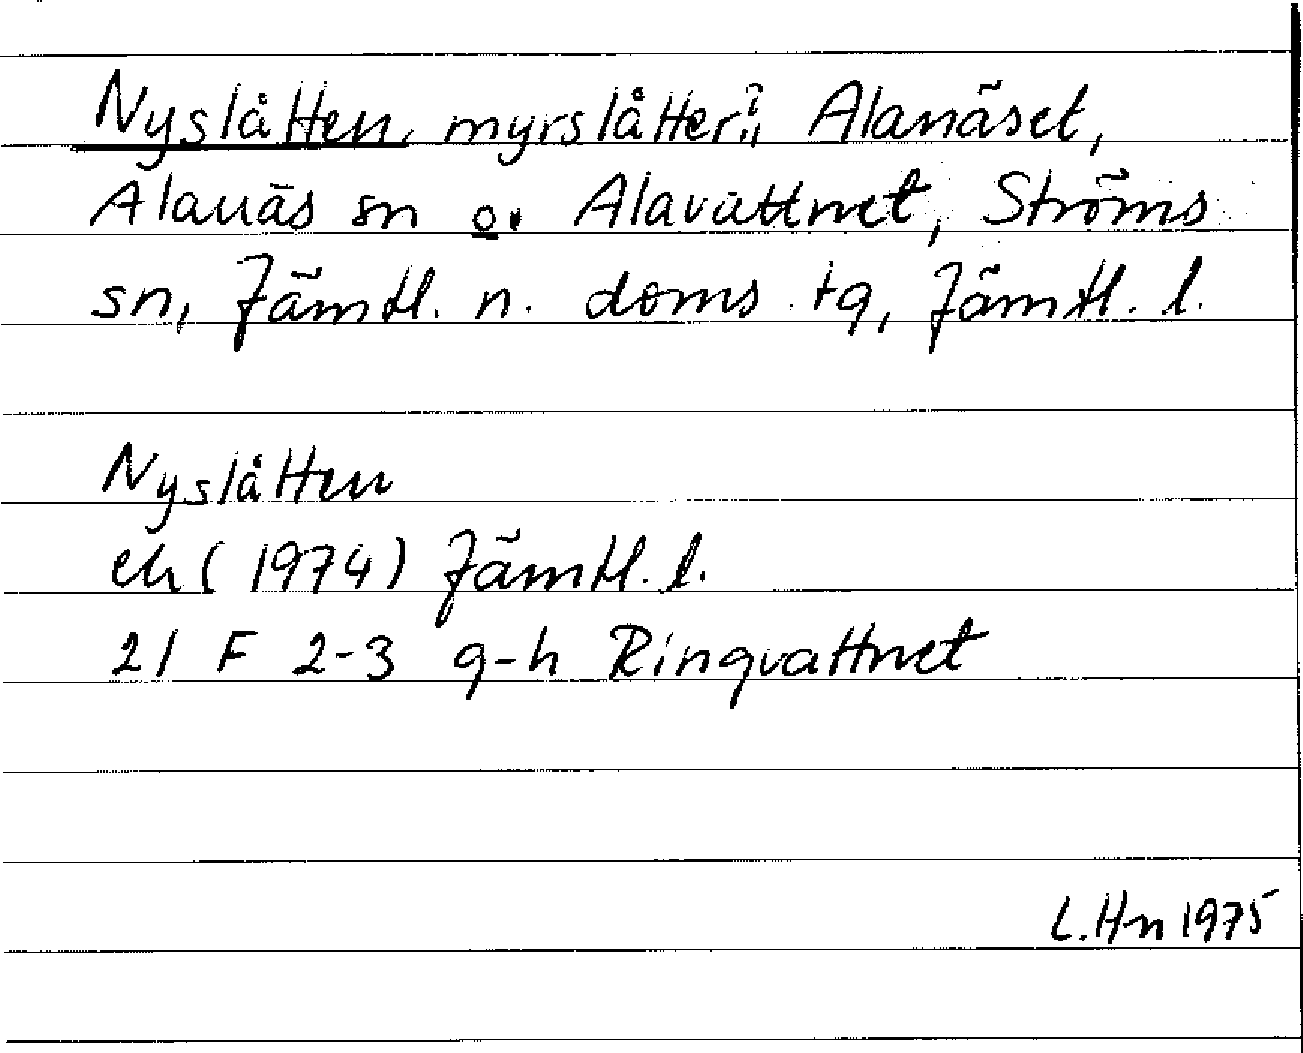 Nyslåtten, myrslåtter?, Alanäset,
Alanäs sn o. Alavattnet, Ströms
sn, Jämtl. n. doms. tg, Jämtl. l.
Nyslåtten
ek (1974) Jämtl. l.
21 F 2-3 g-h Ringvattnet
L. Hn 1975